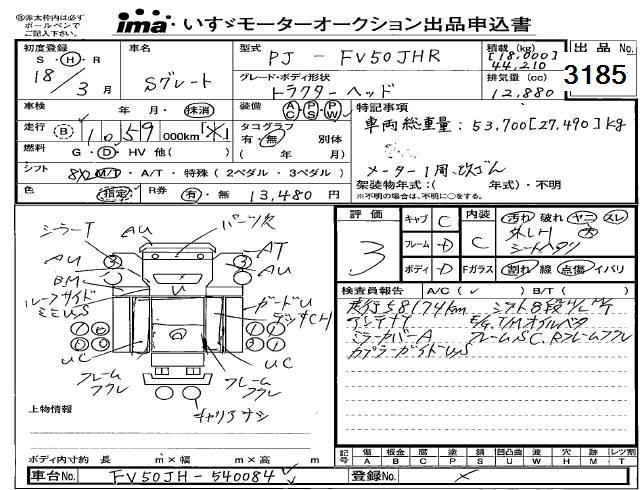 ※赤太枠内は必ず
ボールペンで
ご記入下さい。
ima いすゞモーターオークション出品申込書
初度登録 S・H・R 18年 3月
車名 Sグレート
型式 PJ - FV50JHR
積載 (kg) [18,000] 44,210
出品No. 3185
グレード・ボディ形状 トラクターヘッド
排気量 (cc) 12,880
車検 年 月・抹消
装備 AC PS PW
特記事項
走行 (B) 1059 000km [※]
タコグラフ 有・無 別体 ( 年 月)
車両総重量: 53,700[27,490]kg
燃料 G・D・HV 他( )
メーター1周改ざん
シフト 8速 M/D・A/T・特殊(2ペダル・3ペダル)
架装物年式:( 年式)・不明
※不明の場合は、不明に○をする。
色 (指定) R券 有・無 13,480 円
評価 3
キャブ C
フレーム D
ボディ D
内装 C
Fガラス
汚れ 破れ ヤコ スレ
シートヘタリ
割れ 線 点傷 イバリ
検査員報告 A/C( ✓ ) B/T( )
走行58174km シフト8段
アンテナ E/G,T/Mオイル
ミラーカバーA フレームSC,Rフレームフクレ
カプラーガイド
ミラーT
AU
パーツ欠
AT
AU
AU
BM
U
ルーフサイド
ガードU
デッキCH
UC
UC
フレーム
フクレ
フレーム
フクレ
キャリアナシ
上物情報
ボディ内寸約 長 m×幅 m×高 m
記号 傷A 板金B 腐C 塗P 錆S 凹凸曲U 波W 穴H 跡M レツ割T
車台No. FV50JH-540084
登録No. ×